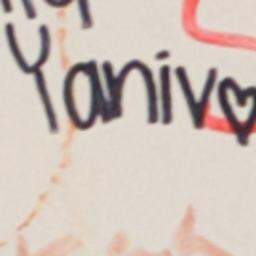 Yaniv♥